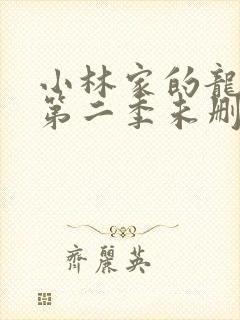 小林家的龍
第二季未刪
齊麗英